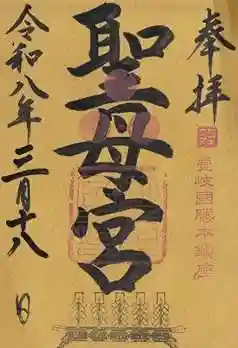 奉拝
壱岐国勝本鎮座
聖母宮
令和八年三月十八日